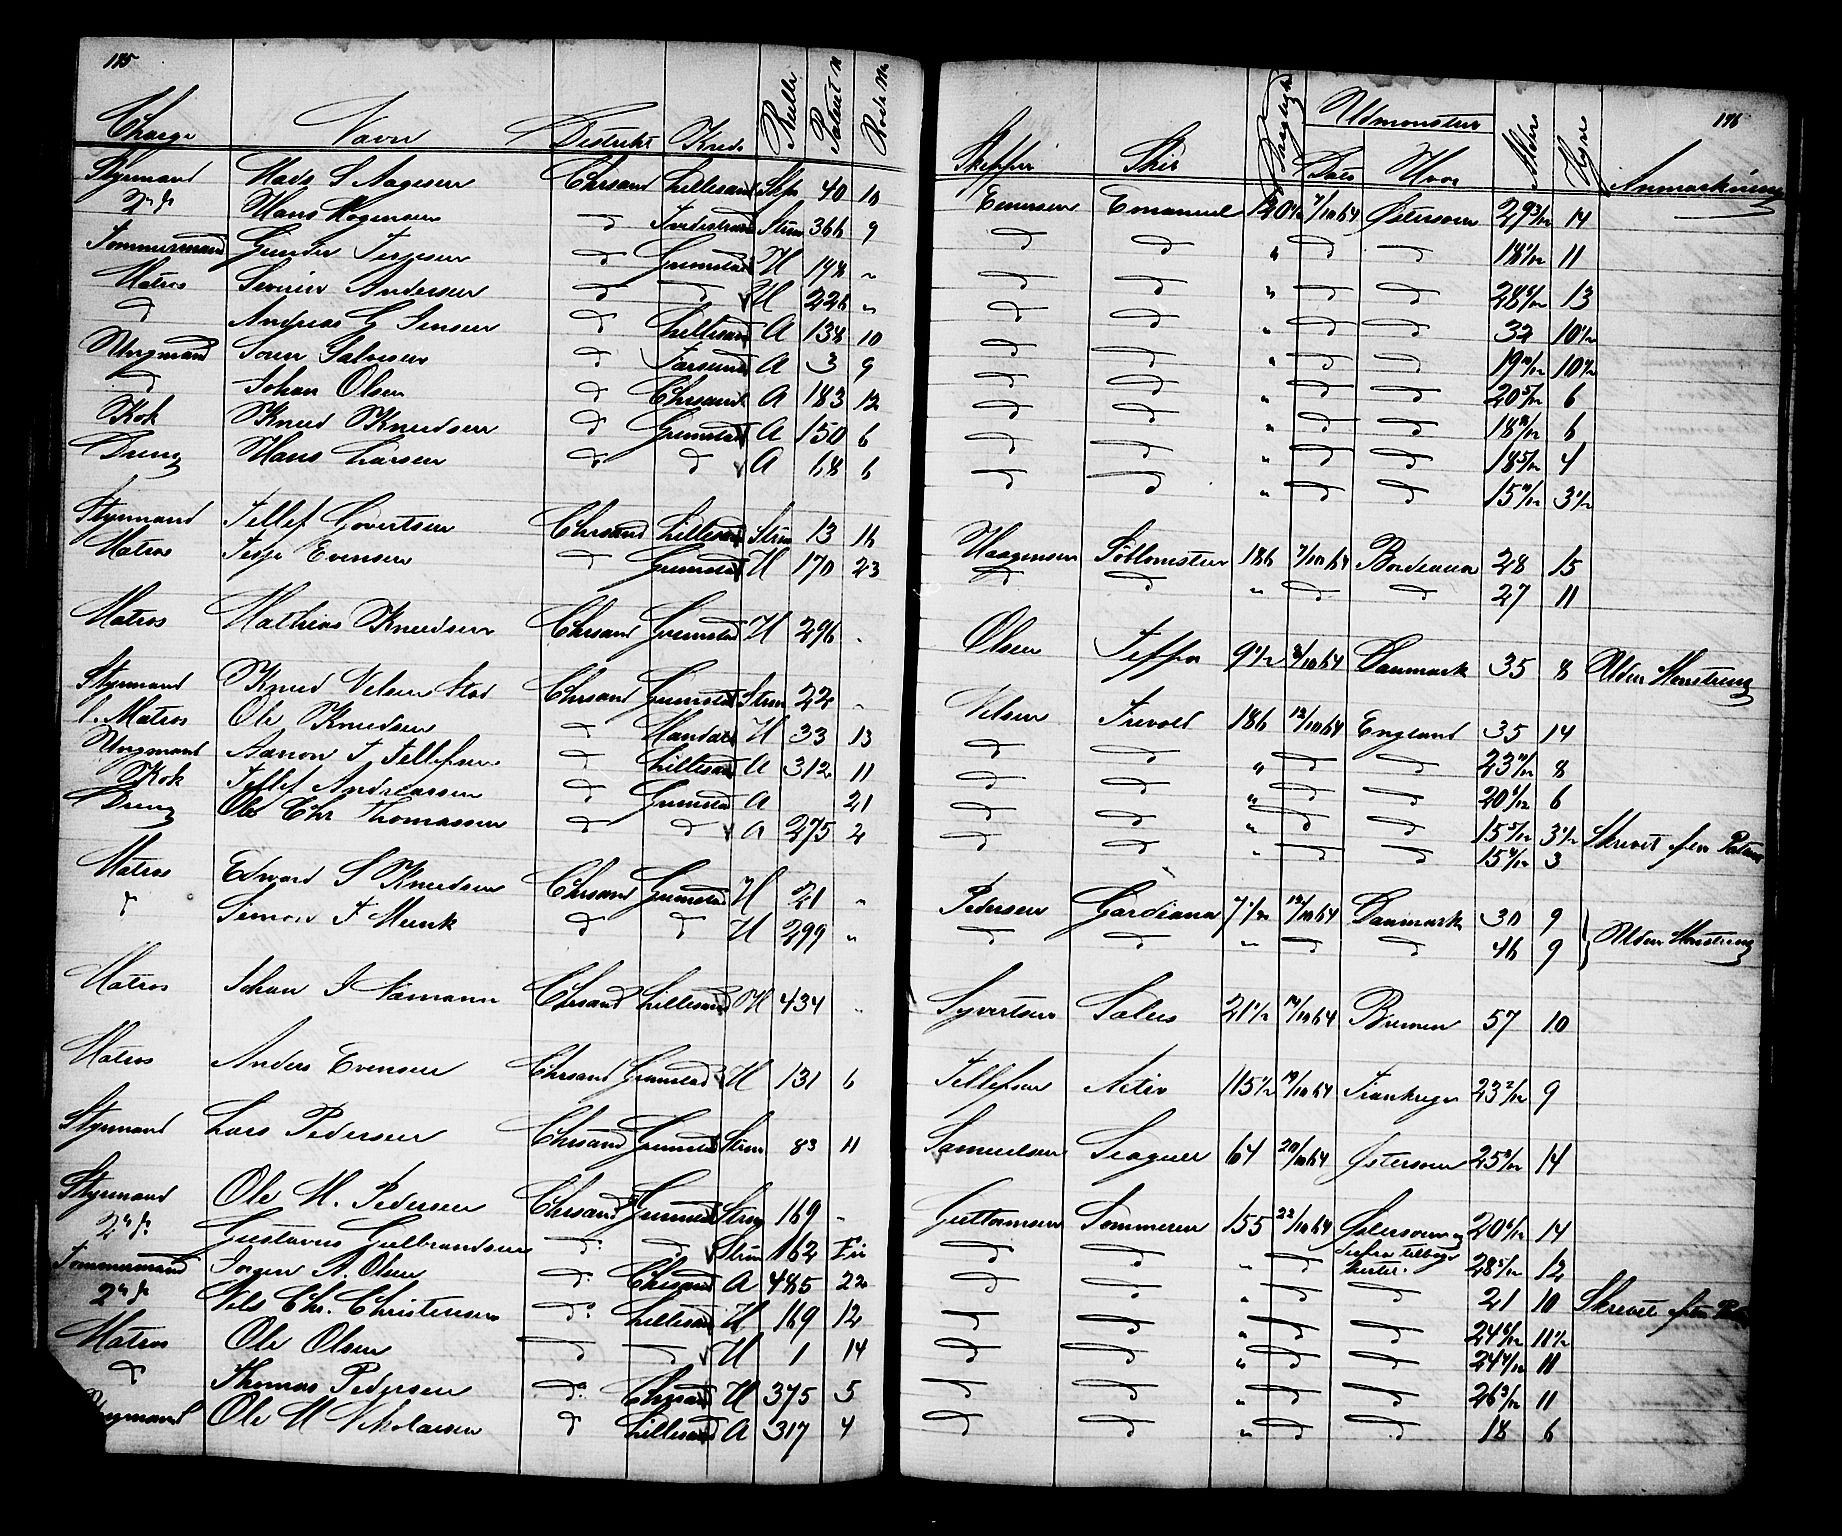 195
Charge Navn Distrikt Kreds Rulle Patent N Rode No
Styrmand Mads S Aagesen Chrsand Lillesand Strm 40 16
2den do Hans Mogensen d Strm 366 9
Tømmermand Gunder Terjesen d Grimstad H 148 "
Matros Andersen d d H 226 "
d Andreas G Jensen d Lillesand A 138 10
Ungmand Søren Salvesen d Farsund A 3 9
d Johan Olsen d Chrsand A 183 12
Kok Knud Knudsen d Grimstad A 150 6
Dreng Hans Larsen d d A 68 6
Styrmand Tellef Govertsen Chrsand Lillesand Strm 13 16
Matros Jeppe Evensen d Grimstad H 170 23
Matros Mathias Knudsen Chrsand Grimstad H 296 "
Styrmand Knud Nielsen Stad Chrsand Grimstad Strm 22 "
l. Matros Ole Knudsen d Mandal H 33 13
Ungmand Aanon T Tellefsen d Lillesand A 312 11
Kok Tellef Andreassen d Grimstad A 21
Dreng Ole Chr Thomassen d d A 275 2
Matros Edvard S Knudsen Chrsand Grimstad H 21 "
d Simon T Munk d d H 299 "
Matros Johan J Næmann Chrsand Lillesand H 434 "
Matros Anders Evensen Chrsand Grimstad H 131 6
Styrmand Lars Pedersen Chrsand Grimstad Strm 83 11
Styrmand Ole M. Pedersen Chrsand Grimstad Strm 169 "
2den do Gustavus Gulbrandsen do d Strm 162 Fri
Tømmermand Jørgen A. Olsen do Chrsand A 485 22
2den do Nils Chr. Christensen do Lillesand H 169 12
Matros Ole Olsen d d H 1 14
d Thomas Pedersen do Chrsand H 375 5
Ungmand Ole M Nikolaisen d Lillesand A 317 4
196
Skipper Skib Drægtighed Udmønstret Dato Hvor Alder Hyre Anmærkning
Evensen Emanuel 120 1/2 7/10 64 Østersøen 29 3/12 14
d d " d d 18 6/12 11
d d " d d 28 6/12 13
d d " d d 32 10 1/2
d d " d d 19 10/12 10 1/2
d d " d d 20 5/12 6
d d " d d 18 11/12 6
d d " d d 18 5/12 4
d d " d d 15 11/12 3 1/2
Haagensen Søblomsten 186 7/10 64 Bordeaux 28 15
d d " d d 27 11
Olsen Jeppa 9 1/2 8/10 64 Danmark 35 8 Uden Mønstring
Nielsen Frevold 186 12/10 64 England 35 14
d d " d d 23 11/12 8
d d " d d 20 1/12 6
d d " d d 15 5/12 3 1/2 Skrevet efter Patent
d d " d d 15 4/12 3
Pedersen Gardiana 7 1/2 12/10 64 Danmark 30 9
d d " d d 46 9 } Uden Mønstring
Syvertsen Salus 21 1/2 14/10 64 Bremen 57 10
Tellefsen Activ 115 1/2 19/10 64 Frankrige 23 2/12 9
Samuelsen Seagull 64 20/10 64 Østersøen 25 8/12 14
Guttormsen Sommeren 155 22/10 64 Østersøen og 20 6/12 14
d d " d derfra tilbage 28 5/12 12
d d " 21 10 Skrevet efter
d d " d d 24 6/12 11 1/2
d d " d d 24 4/12 11
d d " d d 26 3/12 11
d d " d d 18 6